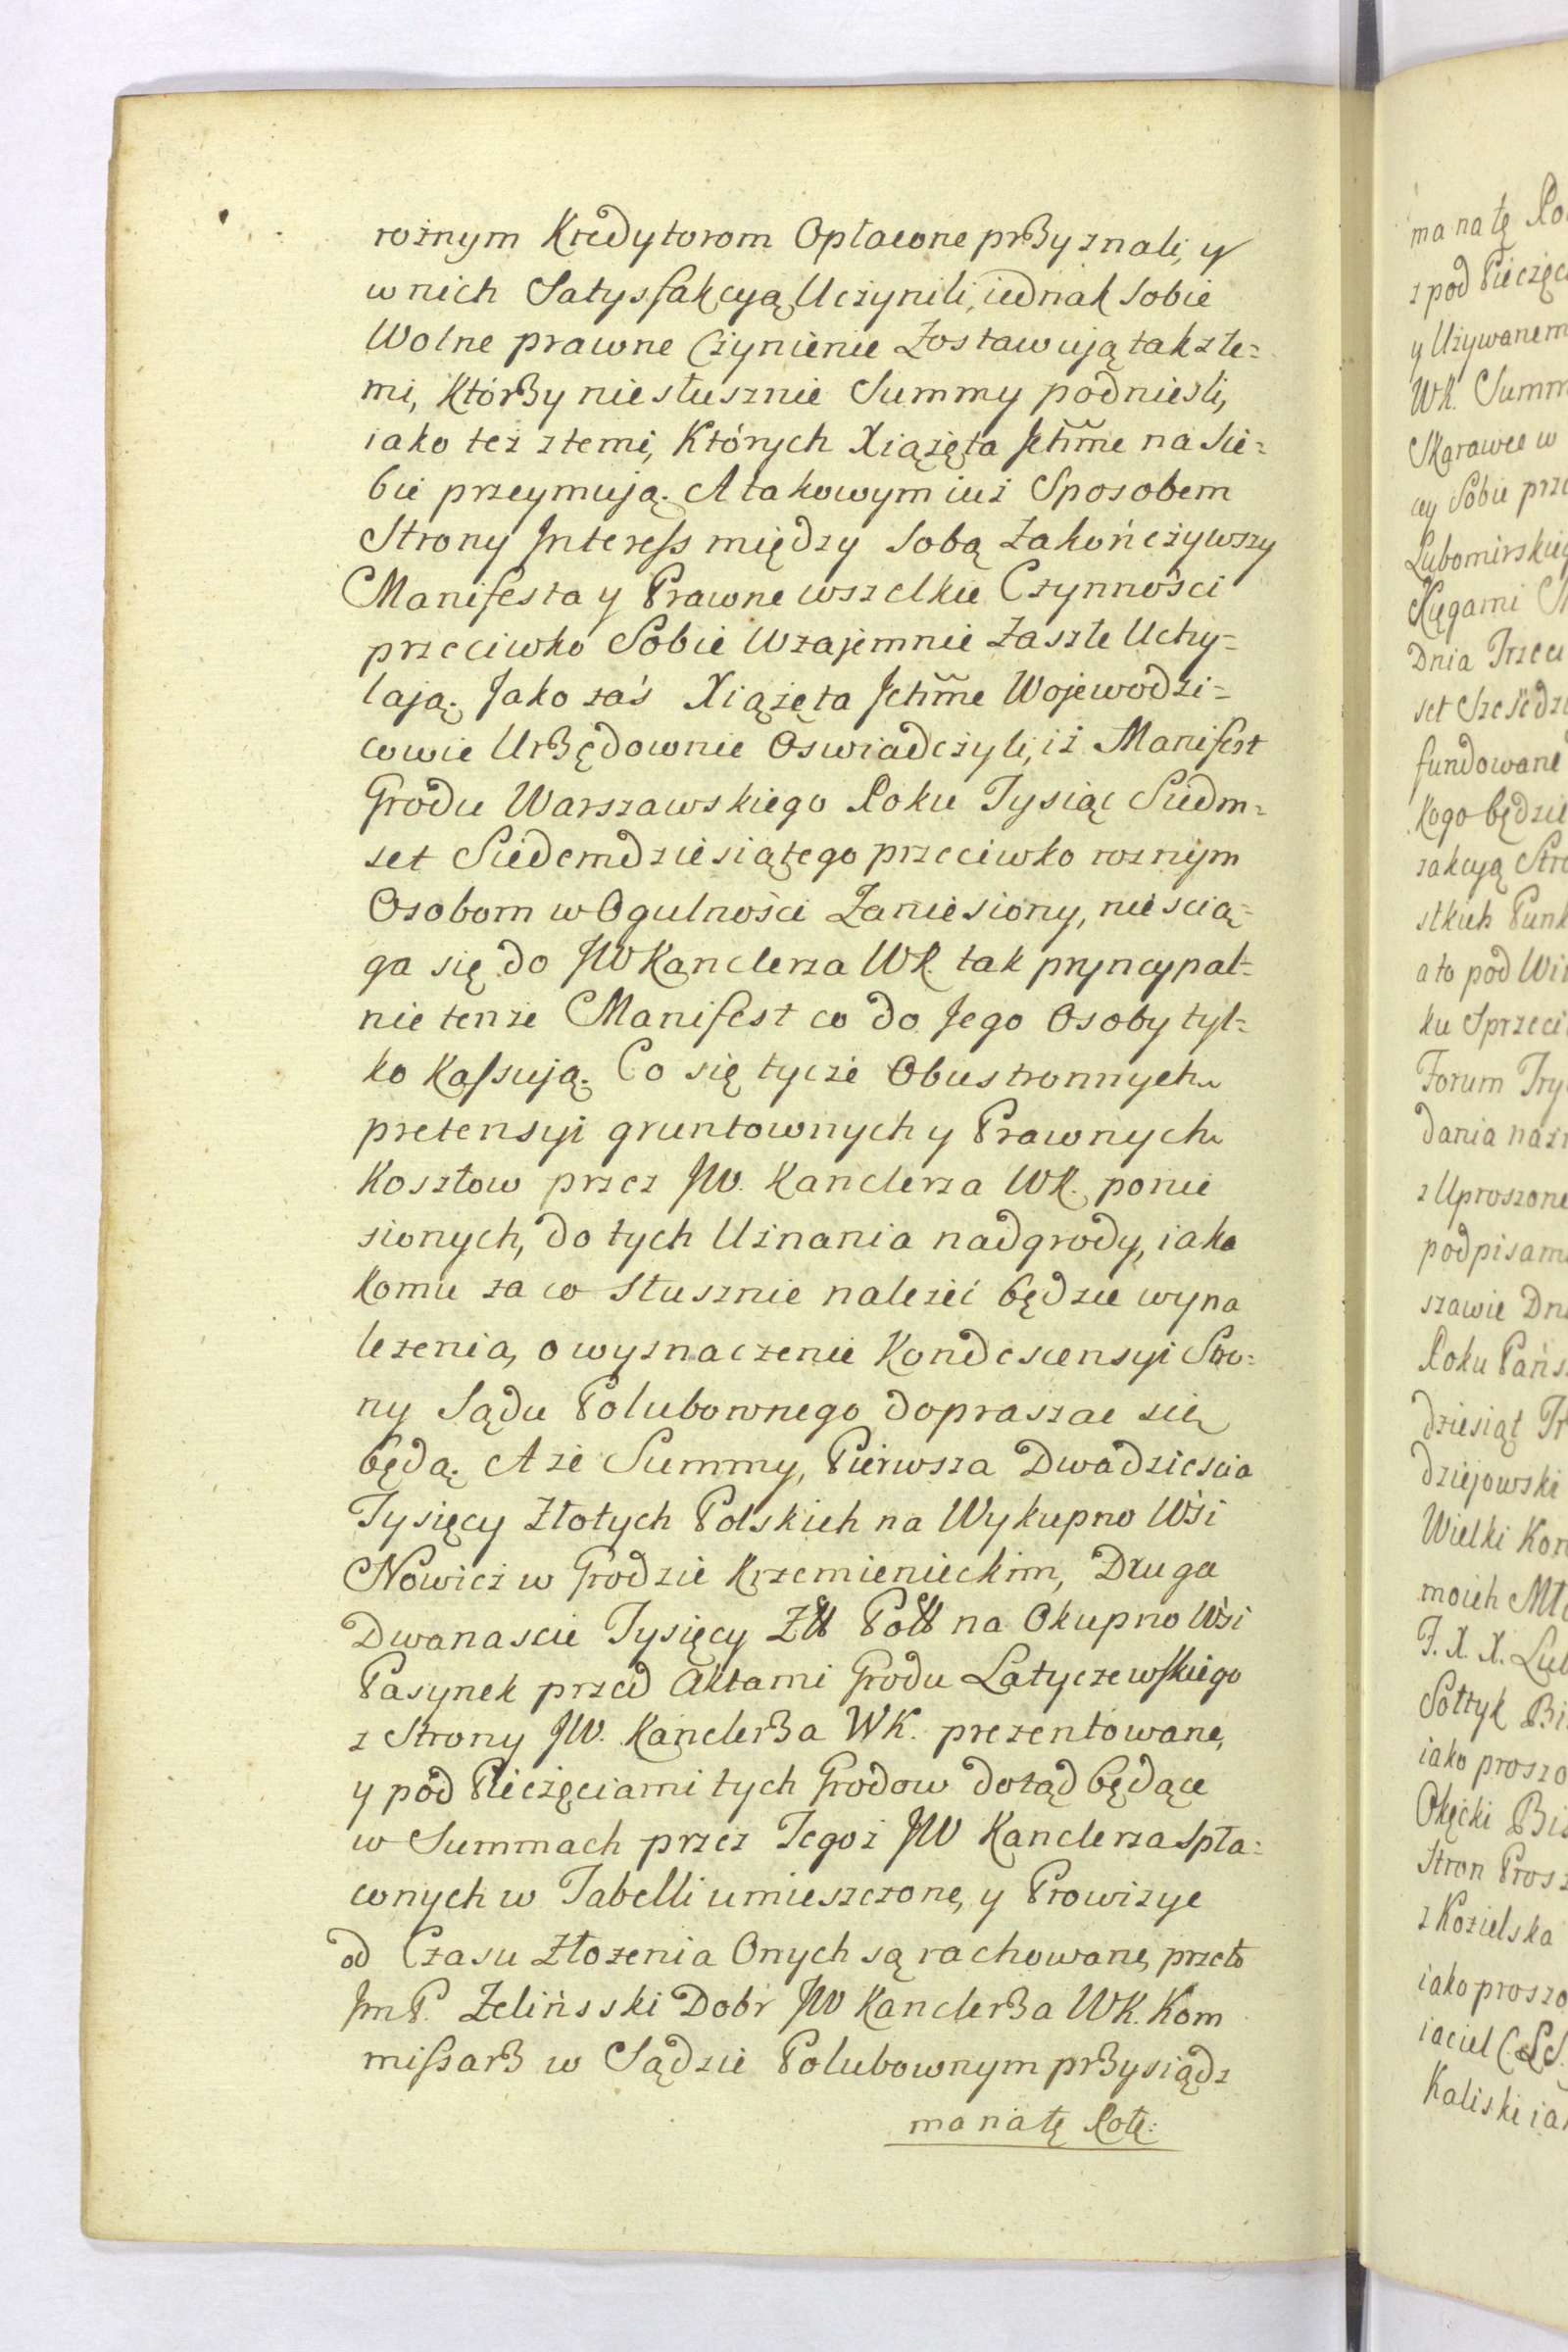 rożnym Kredytorom Opłacone przyznali, y
w nich Satysfakcyą Uczynili, iednak sobie
Wolne prawne Czynienie Zostawują tak z te=
mi, Którzy niesłusznie Summy podnieśli,
iako też z temi, Których Xiążęta Jchm̃e na sie=
bie przeymują. A takowym iuż Sposobem
Strony Interess między sobą zakończywszy
Manifesta y Prawne wszelkie Czynności
przeciwko Sobie Wzajemnie zaszłe Uchy=
lają. Jako zaś Xiążęta Jchm̃e Wojewodzi=
cowie Urzędownie Oswiadczyli, iż Manifest
Grodu Warszawskiego Roku Tysiąc Siedm=
set Siedemdziesiątego przeciwko roznym
Osobom w Ogulności Zaniesiony, nie scią=
ga się do JW Kanclerza WK. tak pryncypal=
nie tenże Manifest co do Jego Osoby tyl=
ko Kassują. Co się tycze Obustronnych
pretensyi gruntownych y Prawnych
Kosztow przez JW. Kanclerza WK. ponie
sionych, do tych Uznania nadgrody, iako
komu za co słusznie należeć będzie wyna
lezenia, o wyznaczenie Kondescensyi Stro=
ny Sądu Polubownego dopraszac się
będą. A że Summy, Pierwsza Dwadziescia
Tysięcy Złotych Polskich na Wykupno Wsi
Nowicz w Grodzie Krzemienieckim, Druga
Dwanascie Tysięcy Złł Polł na Okupno Wsi
Pasynek przed Aktami Grodu Latyczewskiego
z Strony JW. Kanclerza WK. prezentowane,
y pod Pieczęciami tych Grodow dotąd będące
w Summach przez Tegoż JW Kanclerza Spła=
conych w Tabelli umieszczone, y Prowizye
od Czasu Złożenia Onych są rachowane, przeto
Jm P. Zelinsski Dobr JW Kanclerza WK. Kom
missarz w Sądzie Polubownym przysiądz
ma na tę Rotę:
ma na tę Ro
z pod Pieczęci
y Używanem
WK. Summ
Skarawce w
cey Sobie prze
Lubomirskieg
Xięgami
Dnia Trzeci
set Sześćdzi
fundowane
Kogo będzie
zakcyą Stro
stkich Punk
a to pod Wi
ku Sprzeci
Forum Try
dania nazn
z Uproszone
podpisami
szawie Dni
Roku Pańs
dziesiąt Tr
dziejowski
Wielki Kor
moich Mło
J. X. X. Lub
Sołtyk Bi
iako proszo
Okęcki Bis
Stron Prosz
z Kozielska
iako proszo
iaciel (LS.
Kaliski iak